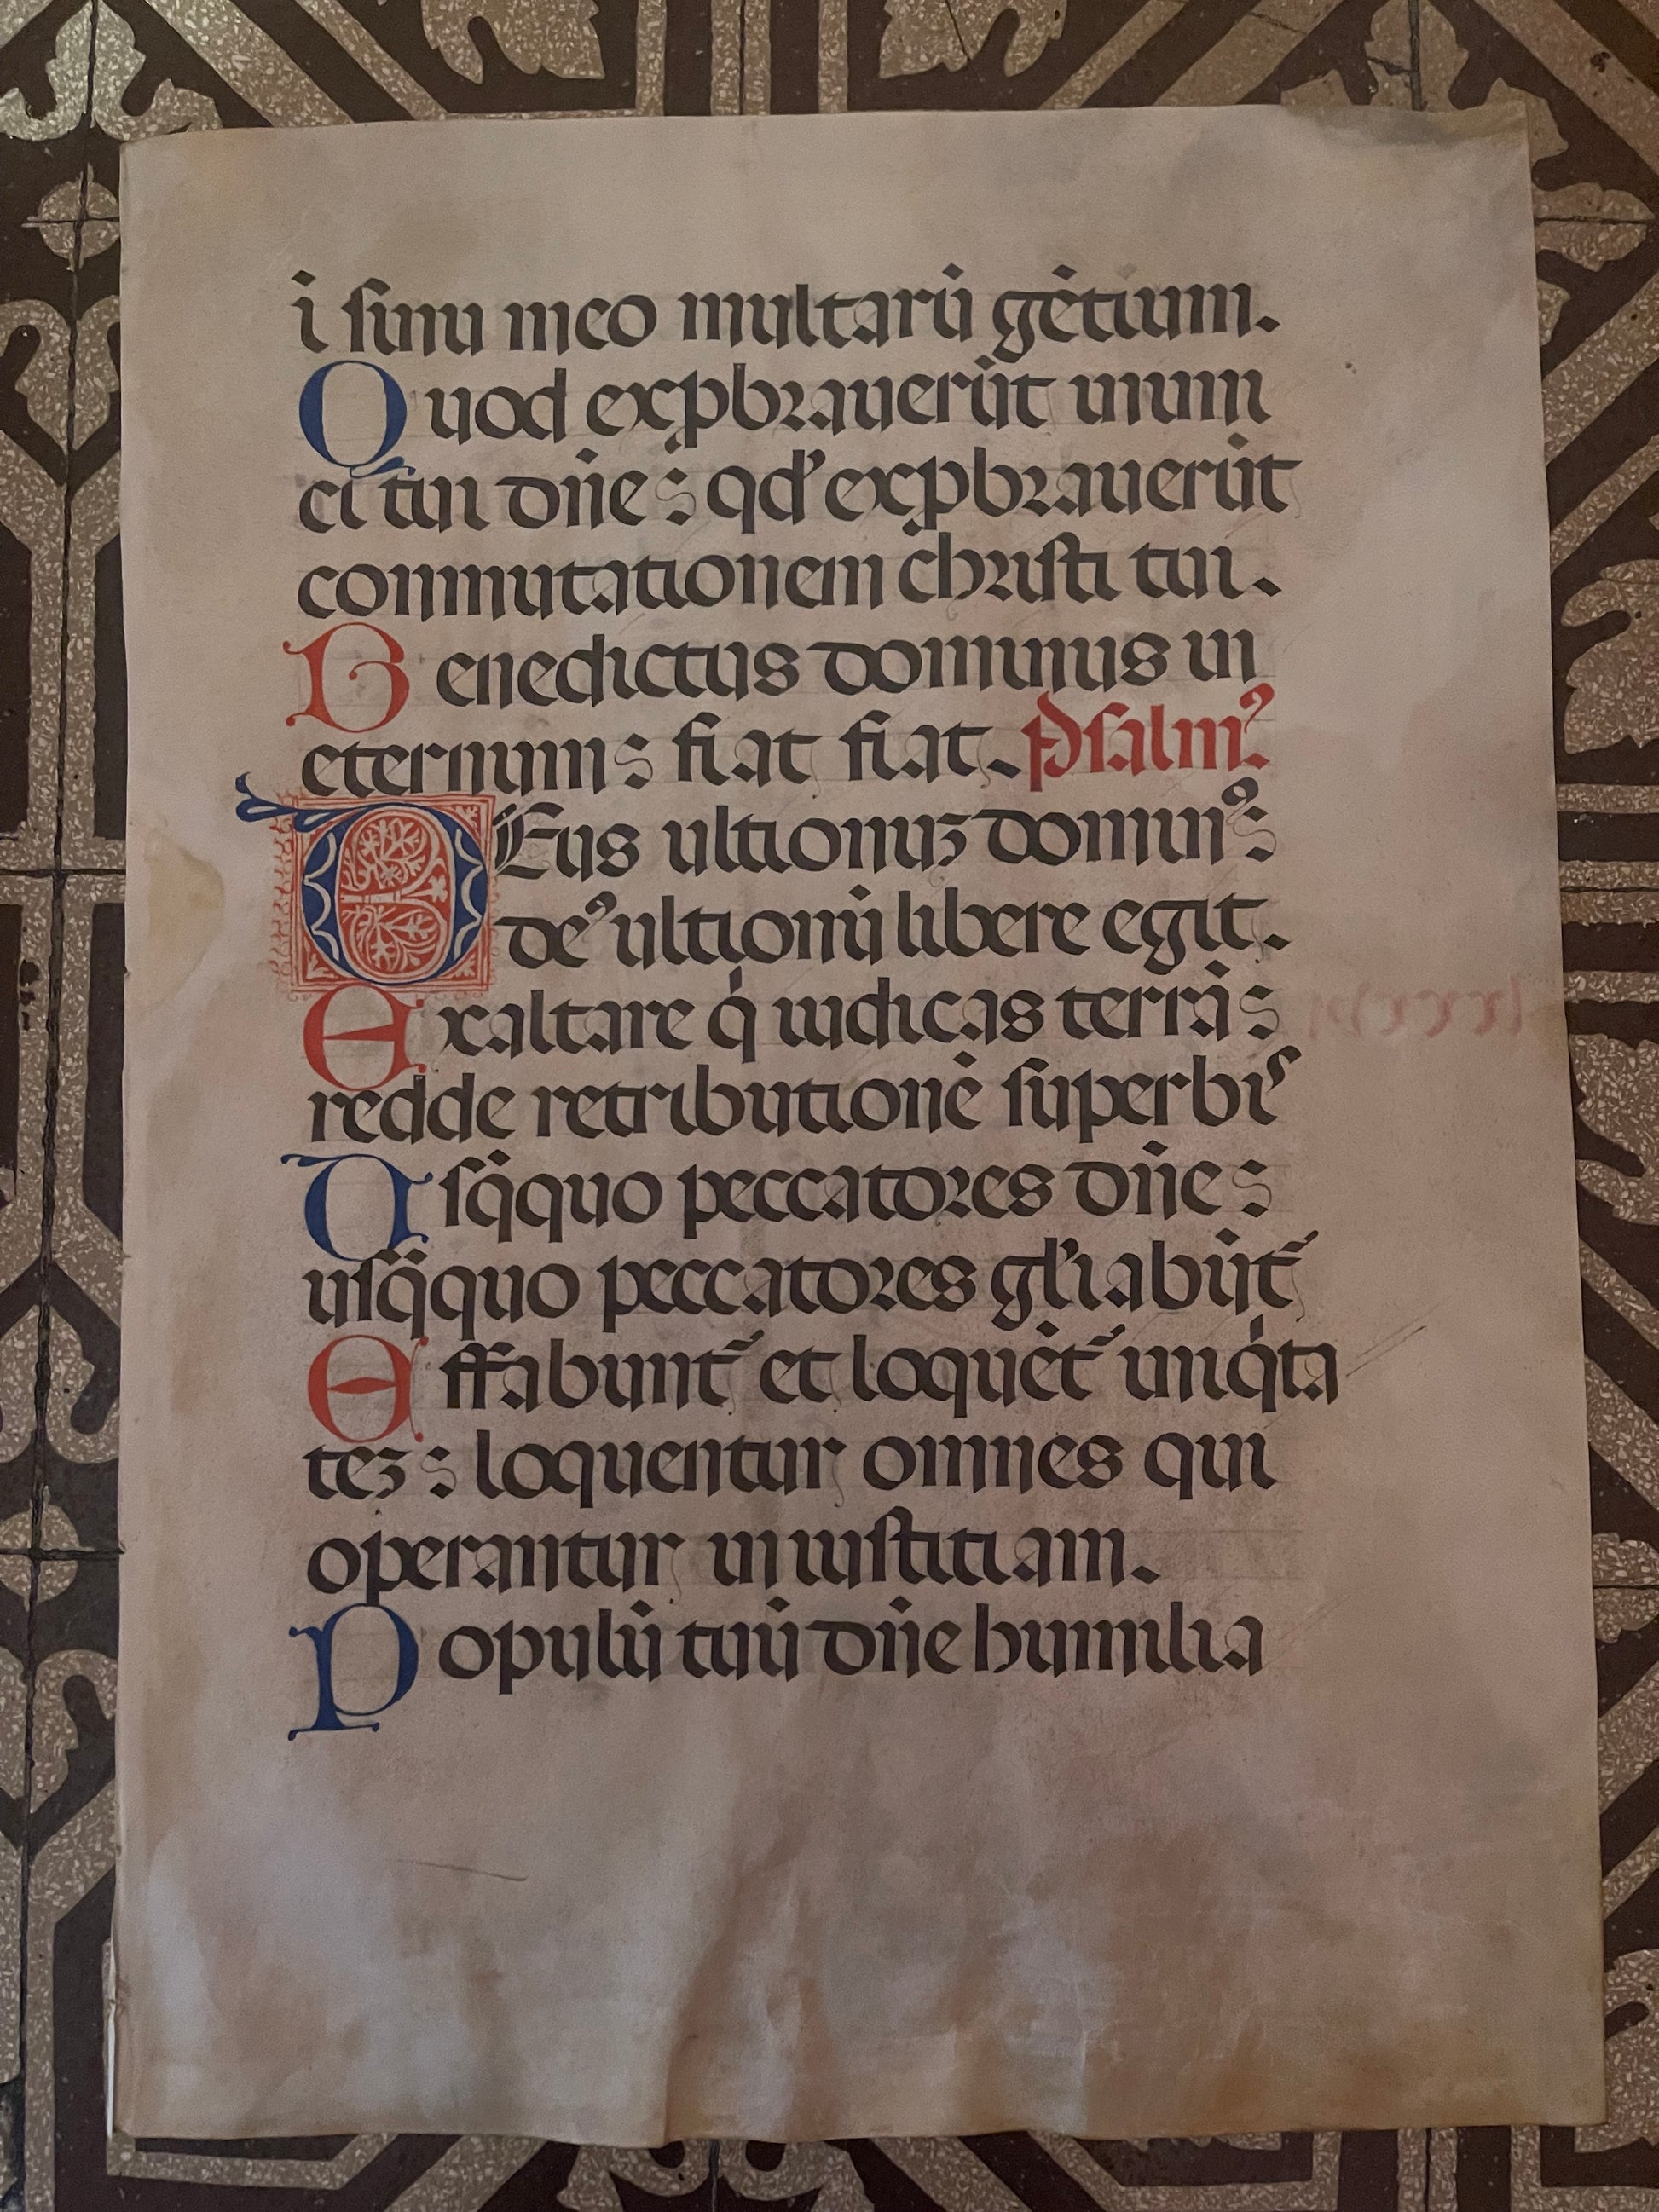 i sinu meo multarū gētium.
Quod exꝓbrauerūt inimi
ci tui dn̄e: qd' exꝓbrauerūt
conmutationem christi tui.
Benedictus dominus in
eternum: fiat fiat. Psalmꝰ.
DEus ultionuʒ dominꝰ:
deꝰ ultionū libere egit.
Exaltare qͥ iudicas terrā:
redde retributionē superbiˢ
Usq̄quo peccatores dn̄e:
usq̄quo peccatores gl'iabūt᷑
Effabunt᷑ et loquēt᷑ iniqͥta
teʒ: loquentur omnes qui
operantur iniustitiam.
Populū tuū dn̄e humilia